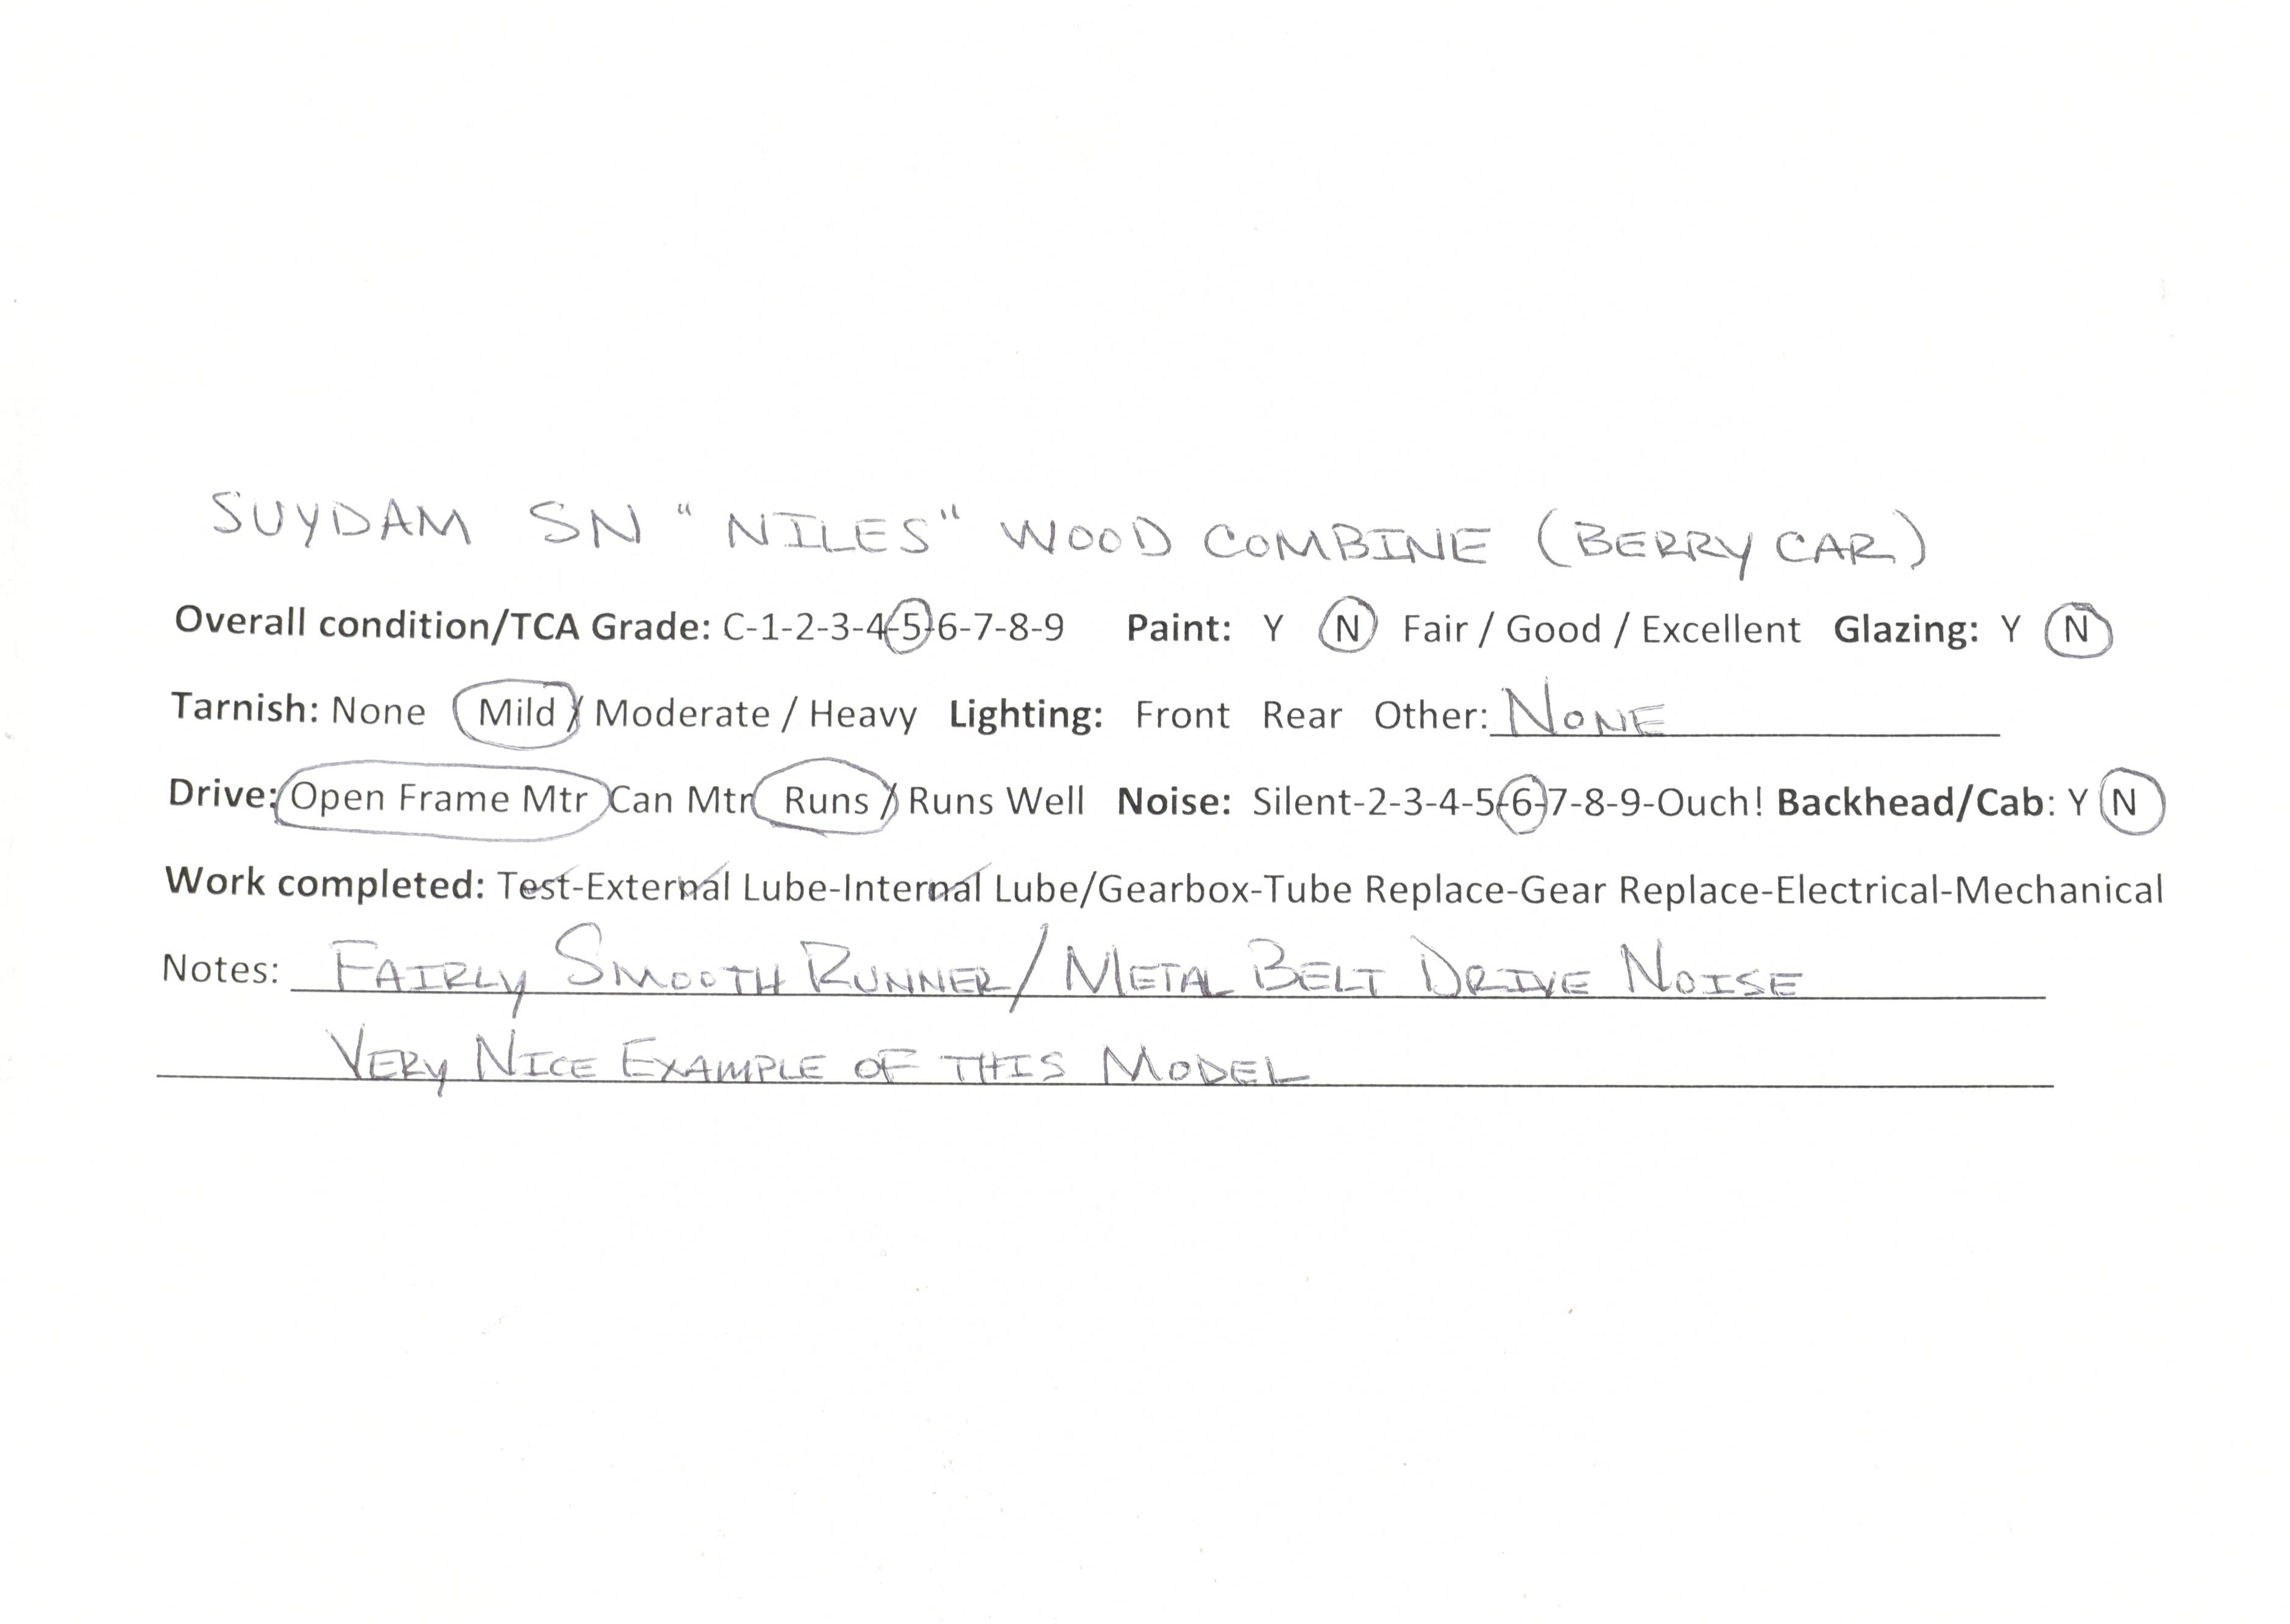 SUYDAM SN "NILES" WOOD COMBINE (BERRY CAR)
Overall condition/TCA Grade: C-1-2-3-4-5-6-7-8-9 Paint: Y N Fair / Good / Excellent Glazing: Y N
Tarnish: None Mild / Moderate / Heavy Lighting: Front Rear Other: NONE
Drive: Open Frame Mtr Can Mtr Runs / Runs Well Noise: Silent-2-3-4-5-6-7-8-9-Ouch! Backhead/Cab: Y N
Work completed: Test-External Lube-Internal Lube/Gearbox-Tube Replace-Gear Replace-Electrical-Mechanical
Notes: FAIRLY SMOOTH RUNNER/METAL BELT DRIVE NOISE
VERY NICE EXAMPLE OF THIS MODEL